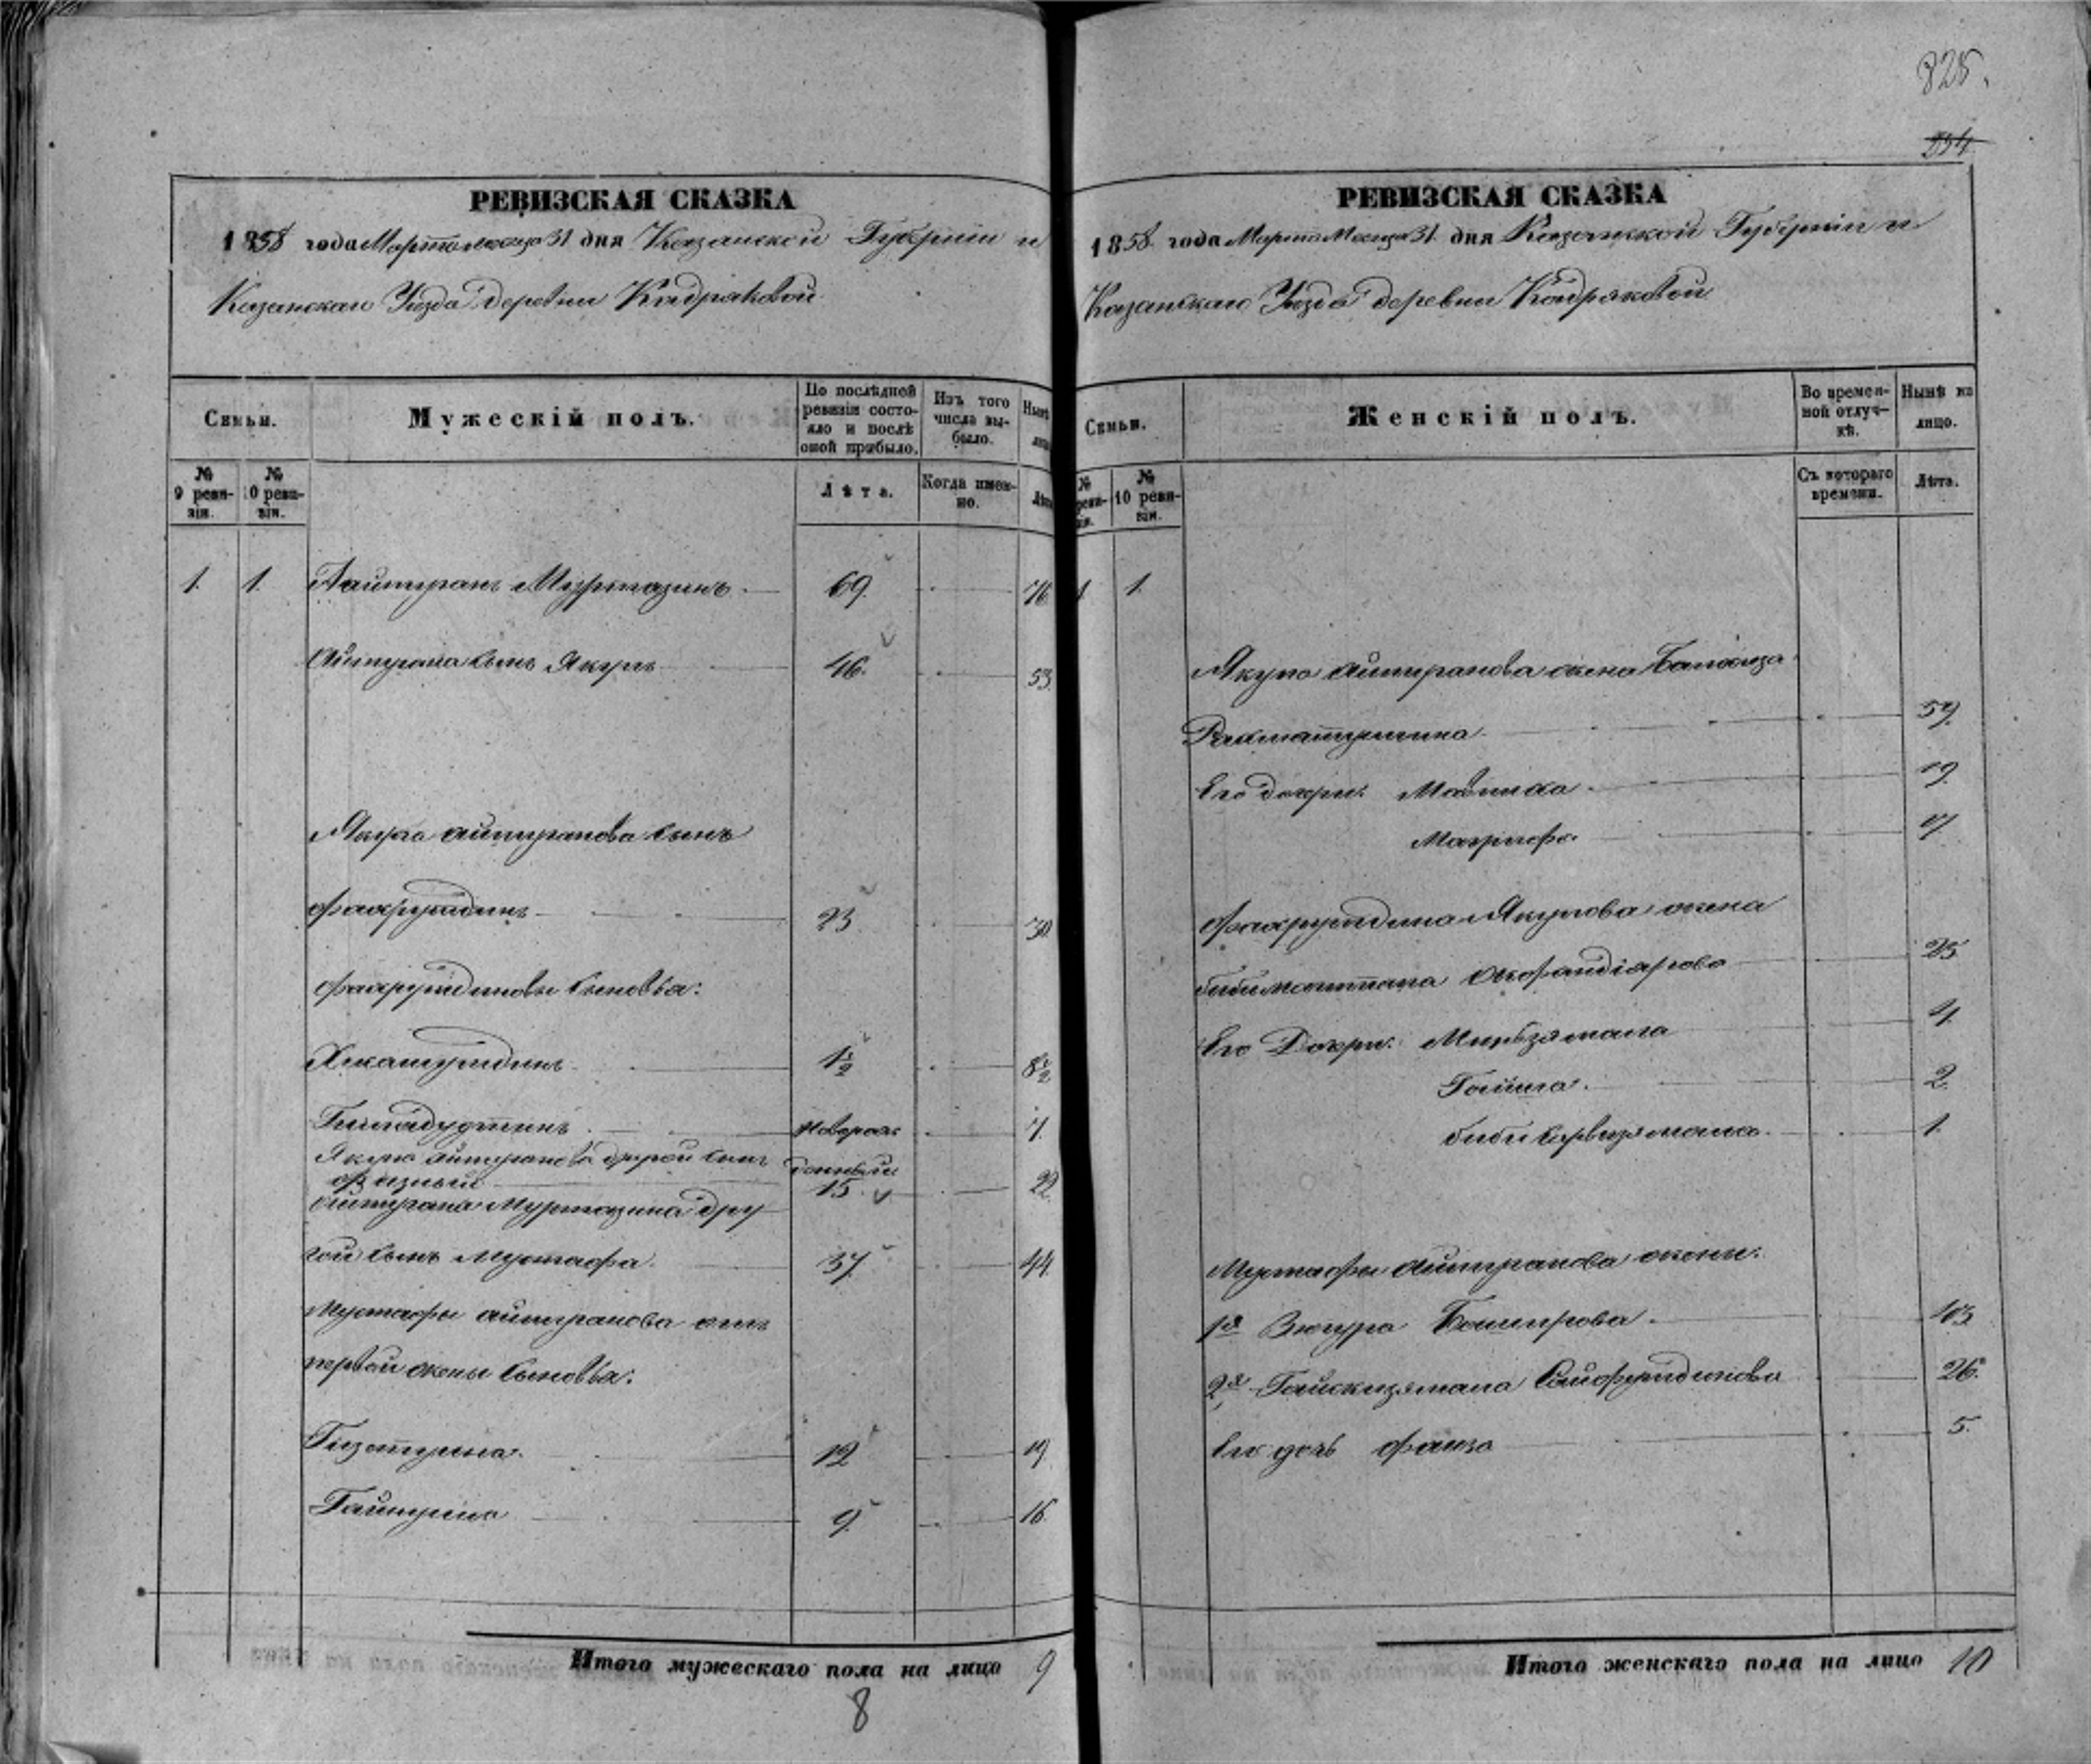 825.
254
РЕВИЗСКАЯ СКАЗКА
1858 года Марта месяца 31 дня Казанской Губернiи и
Казанскаго Уѣзда деревни Кадряковой
Семьи.
Мужескiй полъ.
По послѣдней ревизiи состояло и послѣ оной прибыло.
Изъ того числа выбыло.
Нынѣ
лицо
№ 9 ревизiи.
№ 10 ревизiи.
Лѣта.
Когда именно.
Лѣта
1. 1. Айтуганъ Муртазинъ 69. 76
Айтугана сынъ Якупъ 46. 53.
Якупа Айтуганова сынъ
Фахрутдинъ 23 30
Фахрутдиновы сыновья:
Хисамутдинъ 1½ 8½
Гиладутдинъ новорож 7.
Якупа Айтуганова другой сынъ денный
15. 22.
Айтугана Муртазина дру
гой сынъ Мустафа 37. 44.
Мустафы Айтуганова отъ
первой жены сыновья:
Гизатулла 12 19
Гайнулла 9. 16.
Итого мужескаго пола на лицо 9
8
РЕВИЗСКАЯ СКАЗКА
1858 года Марта Месяца 31 дня Казанской Губернiи и
Казанскаго Уѣзда деревни Кадряковой
Семьи.
Женскiй полъ.
Во временной отлучкѣ.
Нынѣ на лицо.
№ ревизiи.
№ 10 ревизiи.
Съ котораго времени.
Лѣта.
1 1.
Якупа Айтуганова жена
Рахматуллина 57.
Его дочери: 19.
Магруфа 7
Фахрутдина Якупова жена
25
Его Дочери: Минзямала 4.
2.
1.
Мустафы Айтуганова жены:
1я Зюгура Баширова 43
2я Сайфутдинова 26.
Его дочь Фаиза 5.
Итого женскаго пола на лицо 10